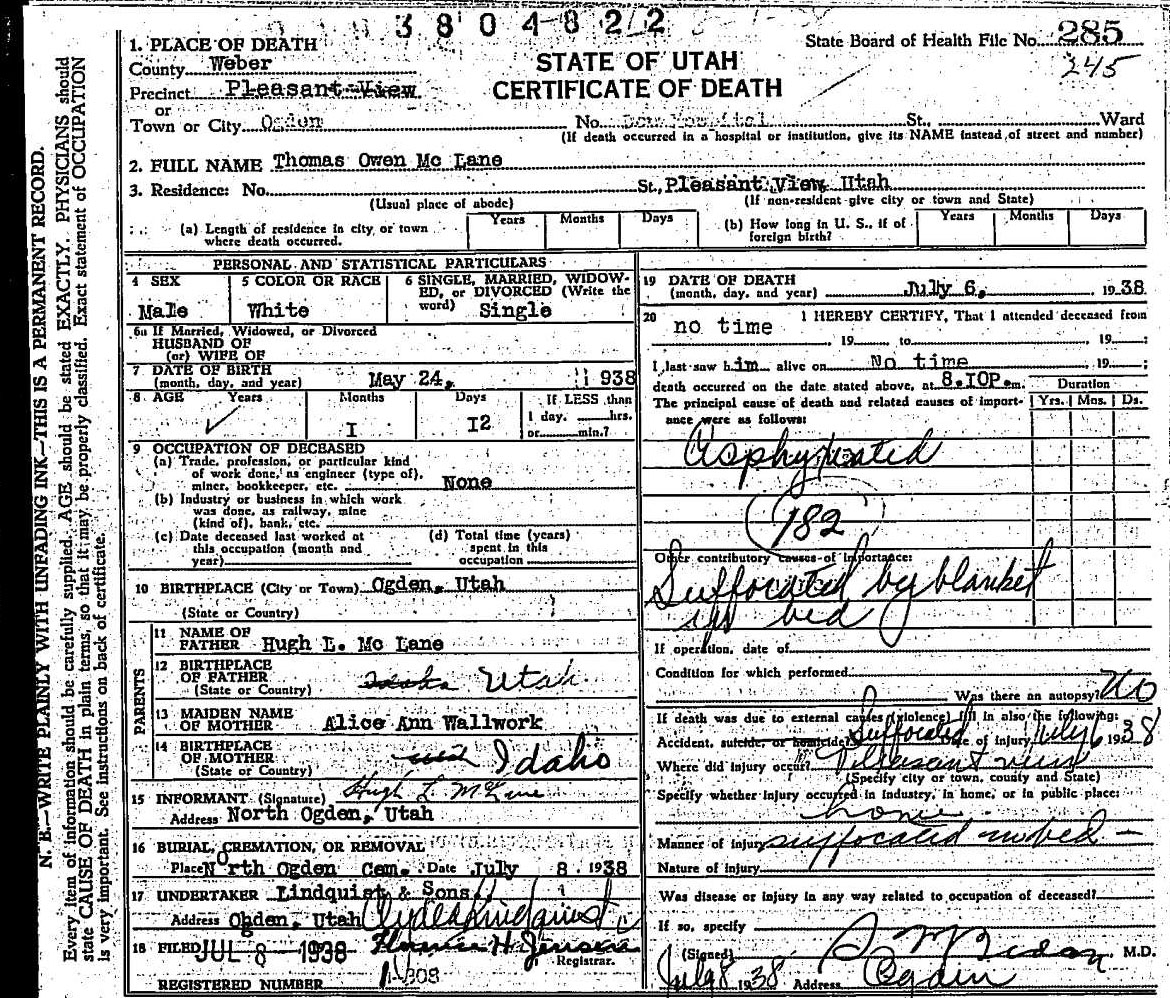 3804822
State Board of Health File No. 285
245
1. PLACE OF DEATH
County Weber
STATE OF UTAH
Precinct Pleasant View
CERTIFICATE OF DEATH
or
Town or City Ogden No. Dee Hospital St., Ward
(If death occurred in a hospital or institution, give its NAME instead of street and number)
2. FULL NAME Thomas Owen Mc Lane
3. Residence: No. St., Pleasant View Utah
(Usual place of abode) (If non-resident give city or town and State)
(a) Length of residence in city or town where death occurred. Years Months Days (b) How long in U. S., if of foreign birth? Years Months Days
PERSONAL AND STATISTICAL PARTICULARS
4 SEX 5 COLOR OR RACE 6 SINGLE, MARRIED, WIDOW-
ED, or DIVORCED (Write the
word)
Male White Single
6a If Married, Widowed, or Divorced
HUSBAND OF
(or) WIFE OF
7 DATE OF BIRTH
(month, day, and year) May 24, 1938
8 AGE Years Months Days If LESS than
1 day. hrs.
I I2 or min.?
9 OCCUPATION OF DECEASED
(a) Trade, profession, or particular kind
of work done, as engineer (type of),
miner, bookkeeper, etc. None
(b) Industry or business in which work
was done, as railway, mine
(kind of), bank, etc.
(c) Date deceased last worked at
this occupation (month and
year)
(d) Total time (years)
spent in this
occupation
10 BIRTHPLACE (City or Town) Ogden, Utah
(State or Country)
PARENTS
11 NAME OF
FATHER Hugh L. Mc Lane
12 BIRTHPLACE
OF FATHER
(State or Country) Idaho Utah
13 MAIDEN NAME
OF MOTHER Alice Ann Wallwork
14 BIRTHPLACE
OF MOTHER
(State or Country) Idaho
15 INFORMANT (Signature) Hugh L. McLane
Address North Ogden, Utah
16 BURIAL, CREMATION, OR REMOVAL
Place North Ogden Cem. Date July 8, 1938
17 UNDERTAKER Lindquist & Sons
Address Ogden, Utah Clyde Lindquist
18 FILED JUL 8 - 1938 Florence H. Jensen
Registrar.
REGISTERED NUMBER
19 DATE OF DEATH
(month, day, and year) July 6, 1938
20 I HEREBY CERTIFY, That I attended deceased from
no time, 19 to , 19 ;
I last saw him alive on No time 19 ;
death occurred on the date stated above, at 8.IOP.m.
Duration
The principal cause of death and related causes of import-
ance were as follows:
Yrs. Mos. Ds.
Asphyxiated
182
Other contributory causes of importance:
Suffocated by blanket
in bed
If operation, date of
Condition for which performed
Was there an autopsy? No
If death was due to external causes (violence) fill in also the following:
Accident, suicide, or homicide? Suffocated Date of injury July 6 1938
Where did injury occur? Pleasant view
(Specify city or town, county and State)
Specify whether injury occurred in industry, in home, or in public place:
home
Manner of injury suffocated in bed
Nature of injury
Was disease or injury in any way related to occupation of deceased?
If so, specify
(Signed) M.D.
July 8 1938 Address Ogden
N. B.—WRITE PLAINLY WITH UNFADING INK—THIS IS A PERMANENT RECORD.
Every item of information should be carefully supplied. AGE should be stated EXACTLY. PHYSICIANS should
state CAUSE OF DEATH in plain terms, so that it may be properly classified. Exact statement of OCCUPATION
is very important. See instructions on back of certificate.